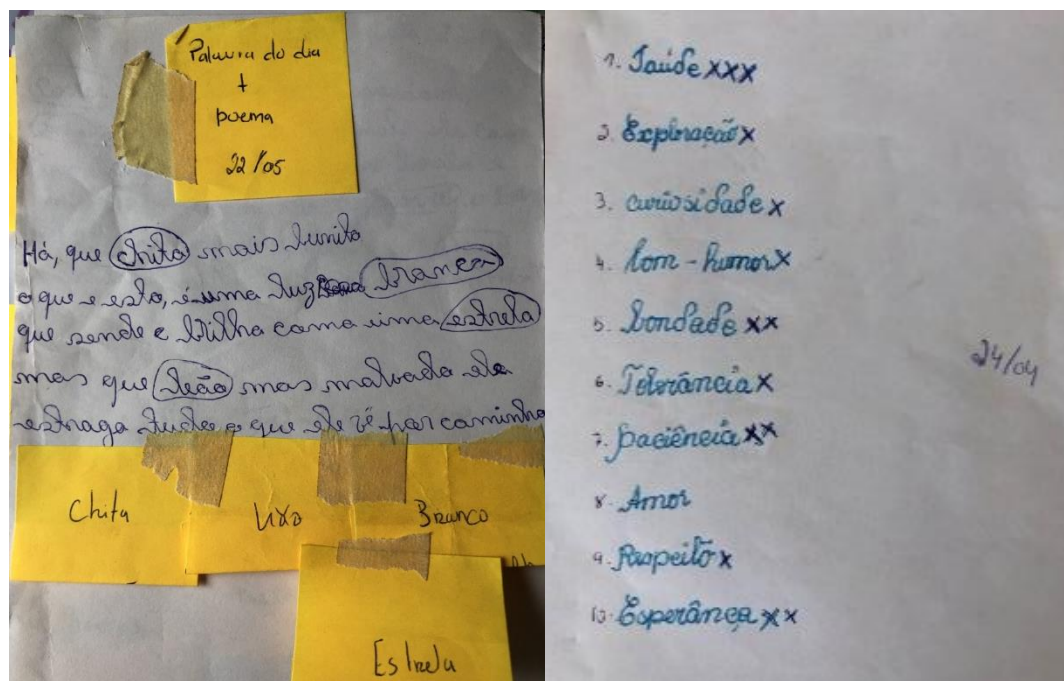 Palavra do dia
+
poema
22/05
Há, que chita mais bunito
o que e esto, é uma luz branca
que sende e brilha como uma estrela
mas que leão mas malvado ele
estraga tudo o que ele vê por caminho
Chita
Lixo
Branco
Estrela
1. Saúde xxx
2. Exploração x
3. curiosidade x
4. bom-humor x
5. bondade xx
6. Tolerância x
7. paciência xx
8. Amor
9. Respeito x
10. Esperânça xx
24/04